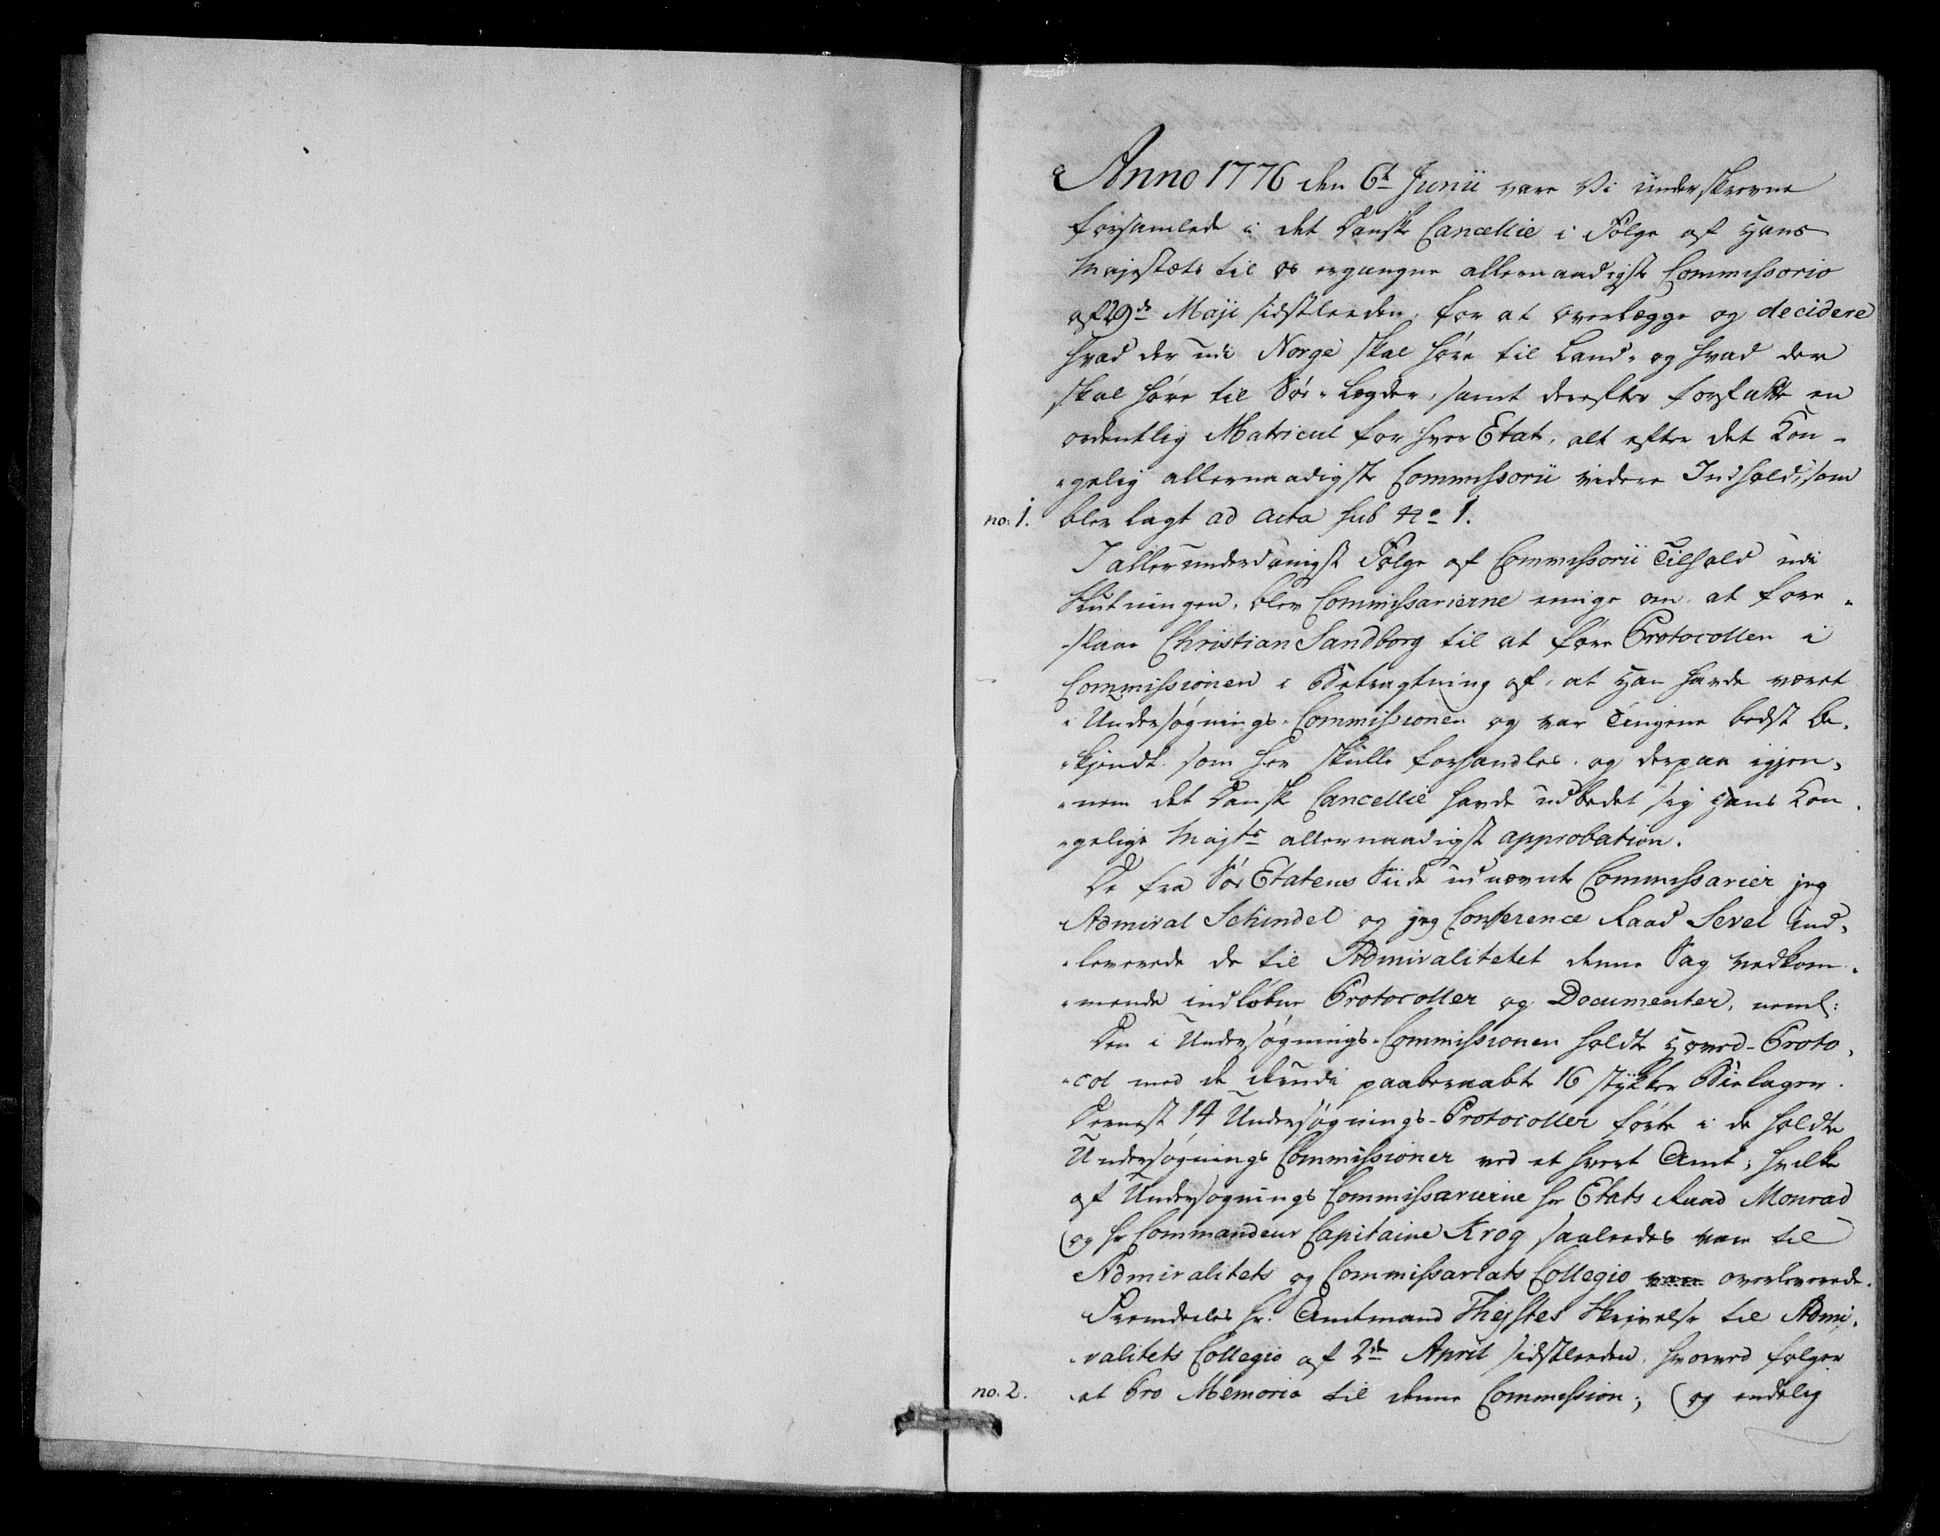 Anno 1776 den 6t Junii vare Vi underskrevne
forsamlede i det Danske Cancellie i Følge af Hans
Majestæts til os ergangne allernaadigste Commissorio
af 29de Maji sidstleeden, for at overlægge og decidere
hvad der udi Norge skal høre til Land- og hvad der
skal høre til Søe-Lægder, samt derefter forfatte en
ordentlig Matricul for hver Etat, alt efter det Kon-
-gelig allernaadigste Commissorii videre Indhold, som
no. 1. blev lagt ad acta sub No 1.
I allerunderdanigst Følge af Commissorii Tilhold udi
Slutningen, blev Commissarierne enige om at fore-
-slaae Christian Sandborg til at føre Protocollen i
Commissionen i Betragtning af, at Han havde været
i Undersøgnings-Commissionen og var Tingene bedst be-
-kjendt som her skulle forhandles, og derpaa igjen-
-nem det Danske Cancellie havde udbedet sig Hans Kon-
-gelige Majts allernaadigst approbation.
De fra Søe Etatens Siide udnævnte Commissarier jeg
Admiral Schindel og jeg Conference Raad Sevel ind-
-leverede de til Admiralitetet denne Sag vedkom-
-mende indløbne Protocoller og Documenter, neml:
Den i Undersøgnings-Commissionen holdte Hoved-Proto-
-col med de derudi paaberaabte 16 stykker Bielager.
Dernest 14 Undersøgnings-Protocoller førte i de holdte
Undersøgnings Commissioner ved et hvert Amt, hvilke
af Undersøgnings Commissarierne hr Etats Raad Monrad
og hr Commandeur Capitaine Krog saaleedes vare til
Admiralitets og Commissariats Collegio vare overleverede.
Fremdeeles hr. Amtmand Thejstes Skrivelse til Admi-
-ralitets Collegio af 2de April sidstleeden, hvorved følger
no. 2. et Pro Memoria til denne Commission; og endelig